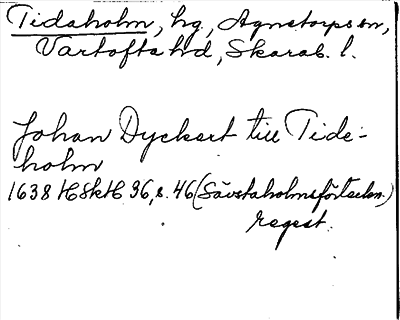 Tidaholm, hg, Agnetorps sn,
Vartofta hd, Skarab. l.
Johan Dyckert till Tide-
holm
1638 HSkH 36, s. 46 (Sävstaholmsförteckn.)
regest.